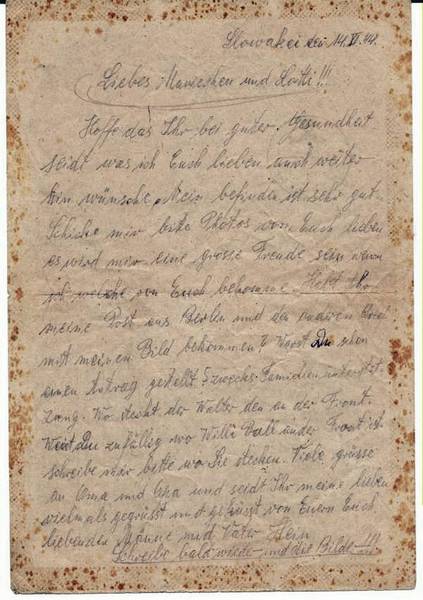 Slowakei den 14. VI. 44.
Liebes Mamischen und Lotti!!!
Hoffe das Ihr bei guter Gesundheit
seidt was ich Euch lieben auch weiter
hin wünsche. Mein befinden ist sehr gut.
Schicke mir bitte Photos von Euch lieben
es wird mir eine grosse Freude sein wenn
ich welche von Euch bekomme. Habt Ihr
meine Post aus Berlin und den anderen
mit meinen Bild bekommen? Warst Du schon
einen Antrag gestellt zwecks Familien unterstüt
zung. Wo steckt der Walter den an der Front.
Weist Du zufällig wo Willi under Front ist
schreibe mir bitte wo Sie stecken. Viele grüsse
an Oma und Opa und seidt Ihr meine lieben
vielmals gegrüsst und geküsst von Euern Euch
liebenden Manne und Vater
Schreibe bald wieder und die Bilder!!!